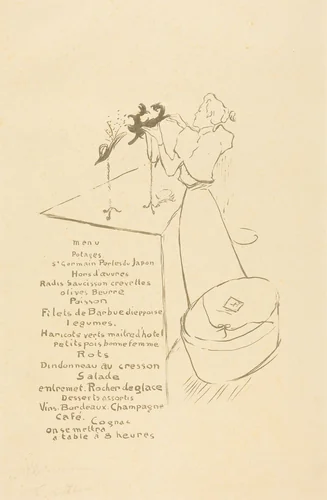 menu
Potages
St Germain Perles du Japon
Hors d'œuvres
Radis Saucisson crevettes
olives Beurre
Poisson
Filets de Barbue dieppoise
legumes.
Haricots verts maitre d'hotel
Petits pois bonne femme
Rots
Dindonneau au cresson
Salade
entremet. Rocher de glace
Desserts assortis
Vins. Bordeaux. Champagne
café.
Cognac
on se mettra
a table à 8 heures